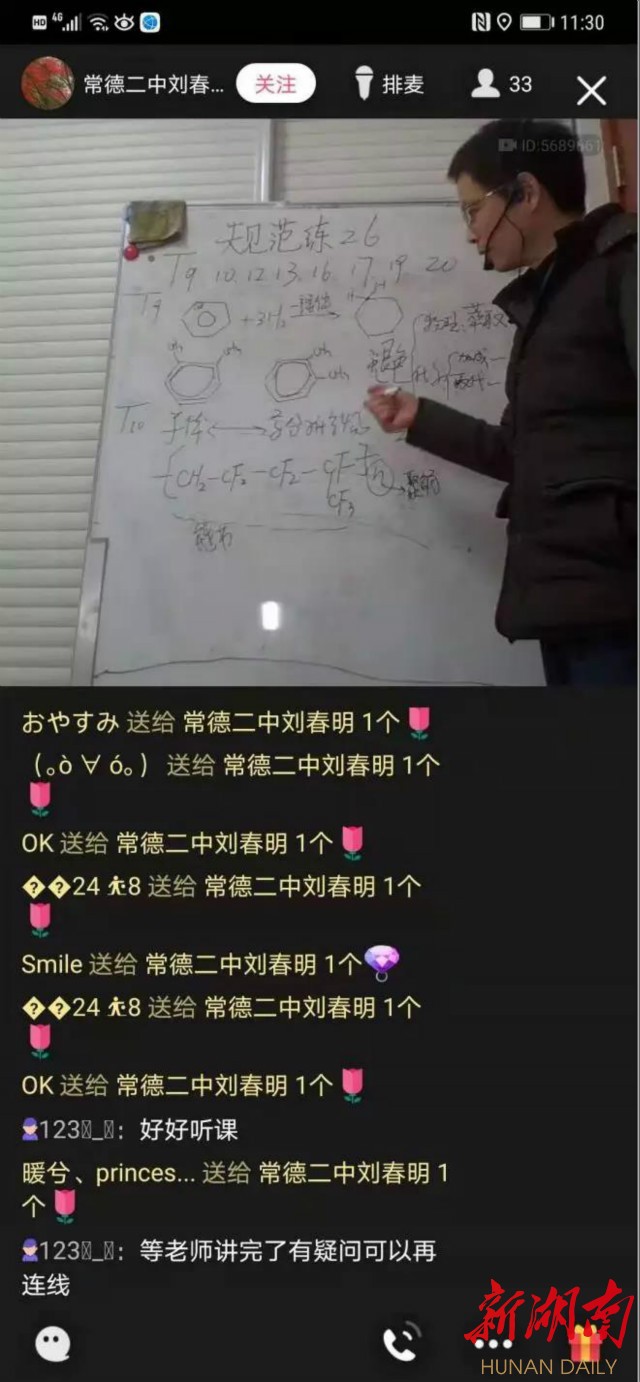 HD 4G 11:30
常德二中刘春... 关注 排麦 33
ID:5689661
规范练26
T9 10. 12 13. 16 17 19 20
T9 +3H₂
T10
CH₂-CF₂-CF₂-CF
CF₃
おやすみ 送给 常德二中刘春明 1个
(｡ò ∀ ó｡) 送给 常德二中刘春明 1个
OK 送给 常德二中刘春明 1个
��24 ⛹8 送给 常德二中刘春明 1个
Smile 送给 常德二中刘春明 1个
��24 ⛹8 送给 常德二中刘春明 1个
OK 送给 常德二中刘春明 1个
123▯_▯：好好听课
暖兮、princes... 送给 常德二中刘春明 1
个
123▯_▯：等老师讲完了有疑问可以再
连线
新湖南
HUNAN DAILY